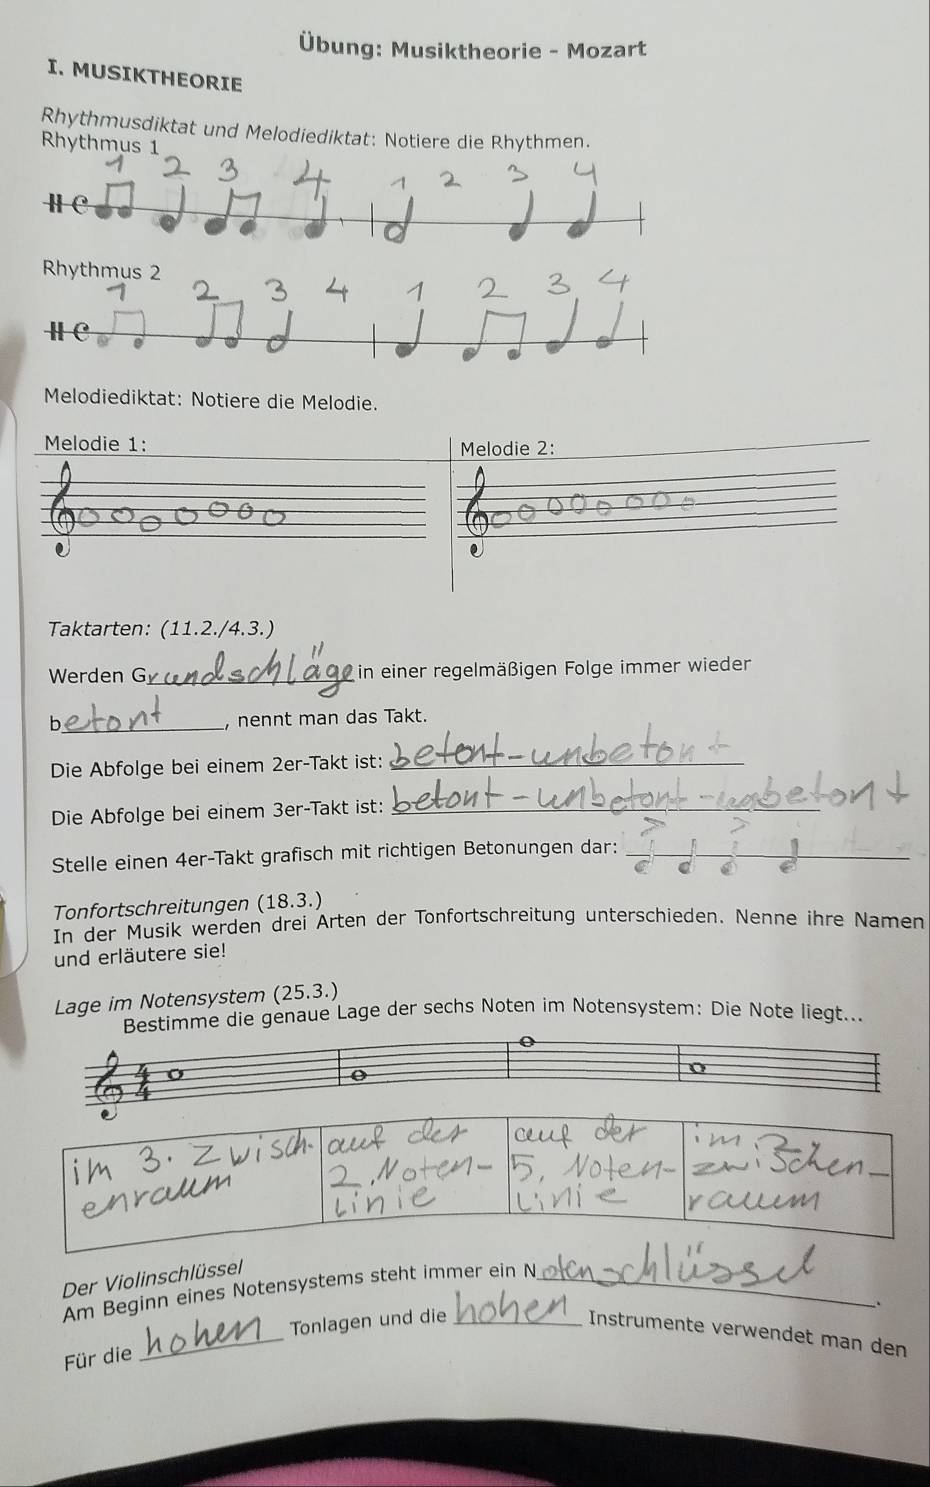 Übung: Musiktheorie - Mozart
I. MUSIKTHEORIE
Rhythmusdiktat und Melodiediktat: Notiere die Rhythmen.
Rhythmus 1
1 2 3 4 1 2 3 4
Rhythmus 2
1 2 3 4 1 2 3 4
Melodiediktat: Notiere die Melodie.
Melodie 1: Melodie 2:
Taktarten: (11.2./4.3.)
Werden Grundschläge in einer regelmäßigen Folge immer wieder
betont, nennt man das Takt.
Die Abfolge bei einem 2er-Takt ist: betont-unbetont
Die Abfolge bei einem 3er-Takt ist: betont-unbetont-unbetont
Stelle einen 4er-Takt grafisch mit richtigen Betonungen dar:
Tonfortschreitungen (18.3.)
In der Musik werden drei Arten der Tonfortschreitung unterschieden. Nenne ihre Namen
und erläutere sie!
Lage im Notensystem (25.3.)
Bestimme die genaue Lage der sechs Noten im Notensystem: Die Note liegt...
4
4
im 3. Zwisch- auf der auf der im
enraum 2. Noten- 5. Noten- zwischen-
Linie Linie raum
Der Violinschlüssel
Am Beginn eines Notensystems steht immer ein Notenschlüssel.
Für die hohen Tonlagen und die hohen Instrumente verwendet man den